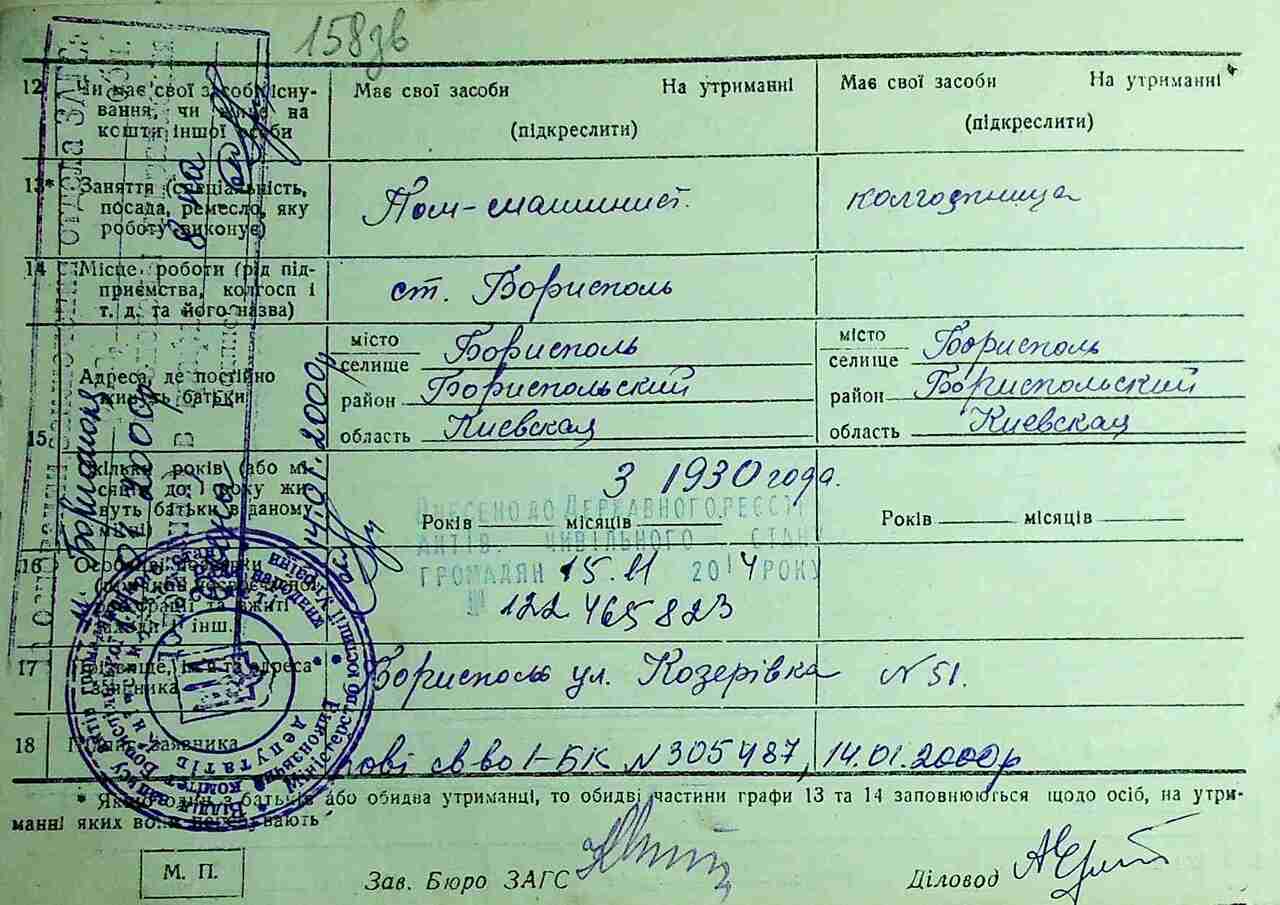 158зв
12 Чи має свої засоби існу-
вання, чи живе на
кошти іншої особи
Має свої засоби На утриманні
(підкреслити)
Має свої засоби На утриманні
(підкреслити)
13* Заняття (спеціальність,
посада, ремесло, яку
роботу виконує)
Пом-машинист.
колгоспница
14 Місце роботи (рід під-
приємства, колгосп і
т. д. та його назва)
ст. Борисполь
15 Адреса, де постійно
живуть батьки
місто
селище Борисполь
район Бориспольский
область Киевская
місто
селище Борисполь
район Бориспольский
область Киевская
Скільки років (або мі-
сяців до 1 року жи-
вуть батьки в даному
місці)
З 1930 года.
Років місяців
Років місяців
ВНЕСЕНО ДО ДЕРЖАВНОГО РЕЄСТРУ
АКТІВ ЦИВІЛЬНОГО СТАНУ
ГРОМАДЯН 15.11 2014 РОКУ
№ 122465823
16 Особливі
та
інш.
17 Прізвище, ім'я та адреса
заявника
Борисполь ул. Козерівка N 51.
18 Підпис заявника
нові св-во І-БК N 305487, 14.01.2000р
* Якщо один з батьків або обидва утриманці, то обидві частини графи 13 та 14 заповнюються щодо осіб, на утри-
манні яких вони перебувають
М. П.
Зав. Бюро ЗАГС
Діловод
ОТДЕЛА ЗАГС
14.01.2000р
Міністерство юстиції України
депутатів